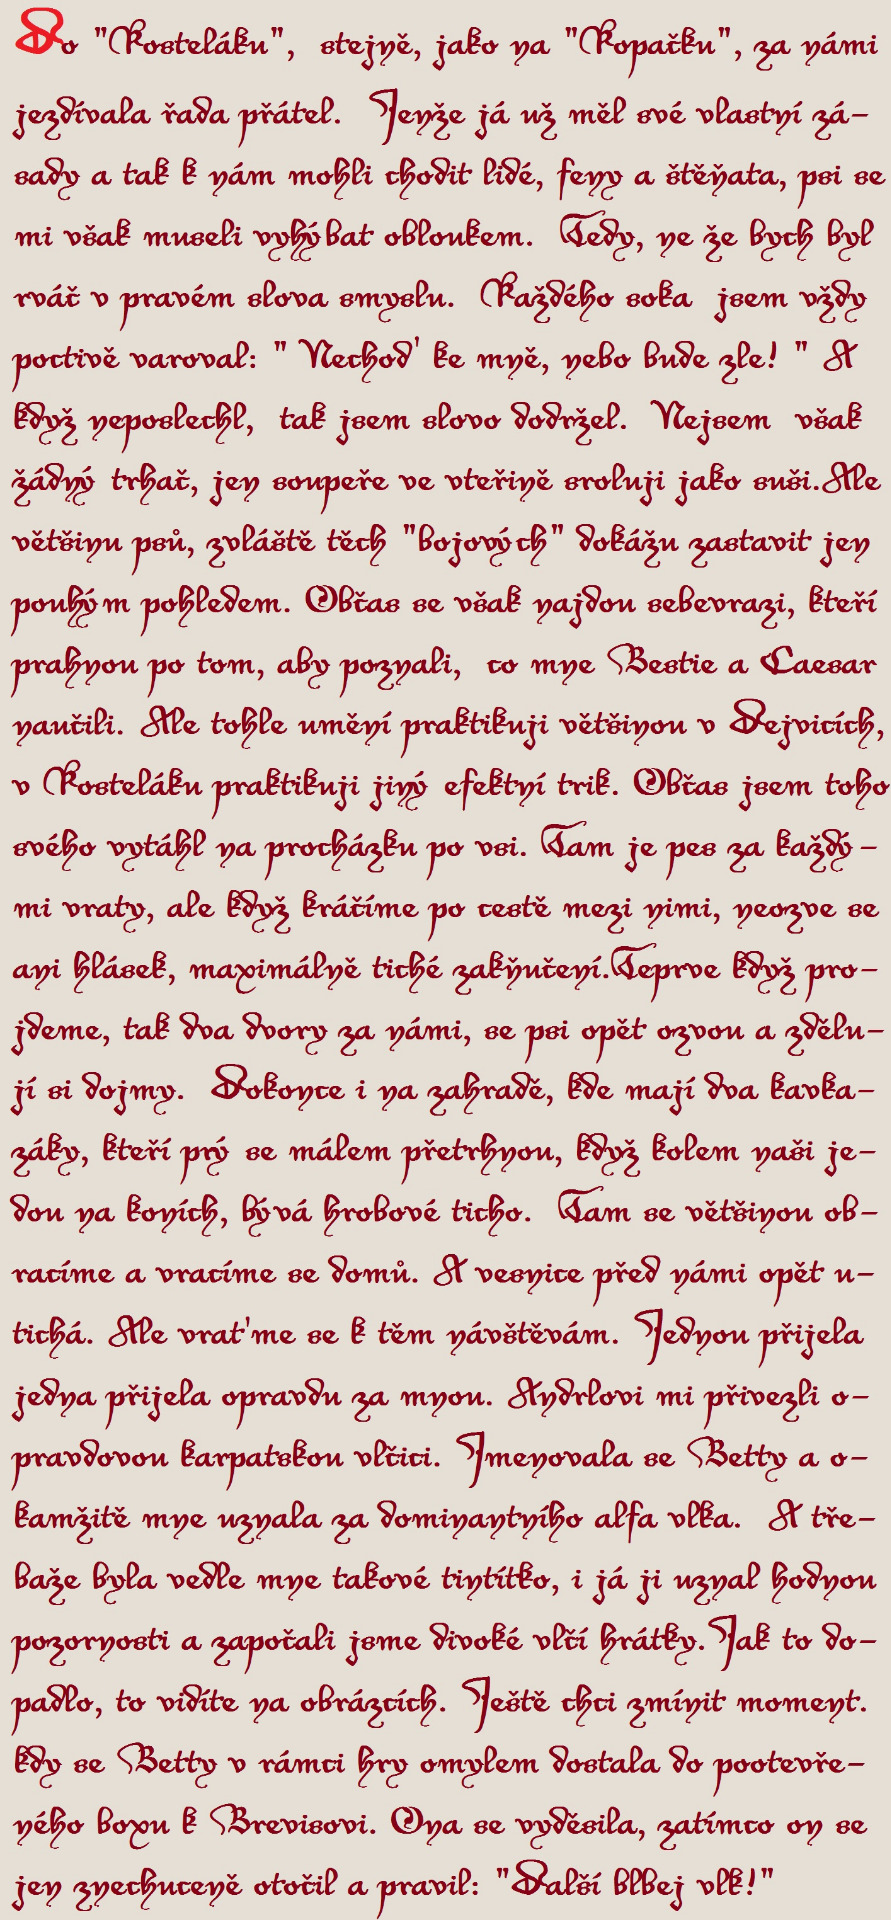 Do "Kosteláku", stejně, jako na "Kopačku", za námi
jezdívala řada přátel. Jenže já už měl své vlastní zá-
sady a tak k nám mohli chodit lidé, feny a štěňata, psi se
mi však museli vyhýbat obloukem. Tedy, ne že bych byl
rváč v pravém slova smyslu. Každého soka jsem vždy
poctivě varoval: " Nechoď ke mně, nebo bude zle! " A
když neposlechl, tak jsem slovo dodržel. Nejsem však
žádný trhač, jen soupeře ve vteřině sroluji jako suši.Ale
většinu psů, zvláště těch "bojových" dokážu zastavit jen
pouhým pohledem. Občas se však najdou sebevrazi, kteří
prahnou po tom, aby poznali, co mne Bestie a Caesar
naučili. Ale tohle umění praktikuji většinou v Dejvicích,
v Kosteláku praktikuji jiný efektní trik. Občas jsem toho
svého vytáhl na procházku po vsi. Tam je pes za každý-
mi vraty, ale když kráčíme po cestě mezi nimi, neozve se
ani hlásek, maximálně tiché zakňučení.Teprve když pro-
jdeme, tak dva dvory za námi, se psi opět ozvou a zdělu-
jí si dojmy. Dokonce i na zahradě, kde mají dva kavka-
záky, kteří prý se málem přetrhnou, když kolem naši je-
dou na koních, bývá hrobové ticho. Tam se většinou ob-
racíme a vracíme se domů. A vesnice před námi opět u-
tichá. Ale vrat'me se k těm návštěvám. Jednou přijela
jedna přijela opravdu za mnou. Andrlovi mi přivezli o-
pravdovou karpatskou vlčici. Jmenovala se Betty a o-
kamžitě mne uznala za dominantního alfa vlka. A tře-
baže byla vedle mne takové tintítko, i já ji uznal hodnou
pozornosti a započali jsme divoké vlčí hrátky.Jak to do-
padlo, to vidíte na obrázcích. Ještě chci zmínit moment.
kdy se Betty v rámci hry omylem dostala do pootevře-
ného boxu k Brevisovi. Ona se vyděsila, zatímco on se
jen znechuceně otočil a pravil: "Další blbej vlk!"